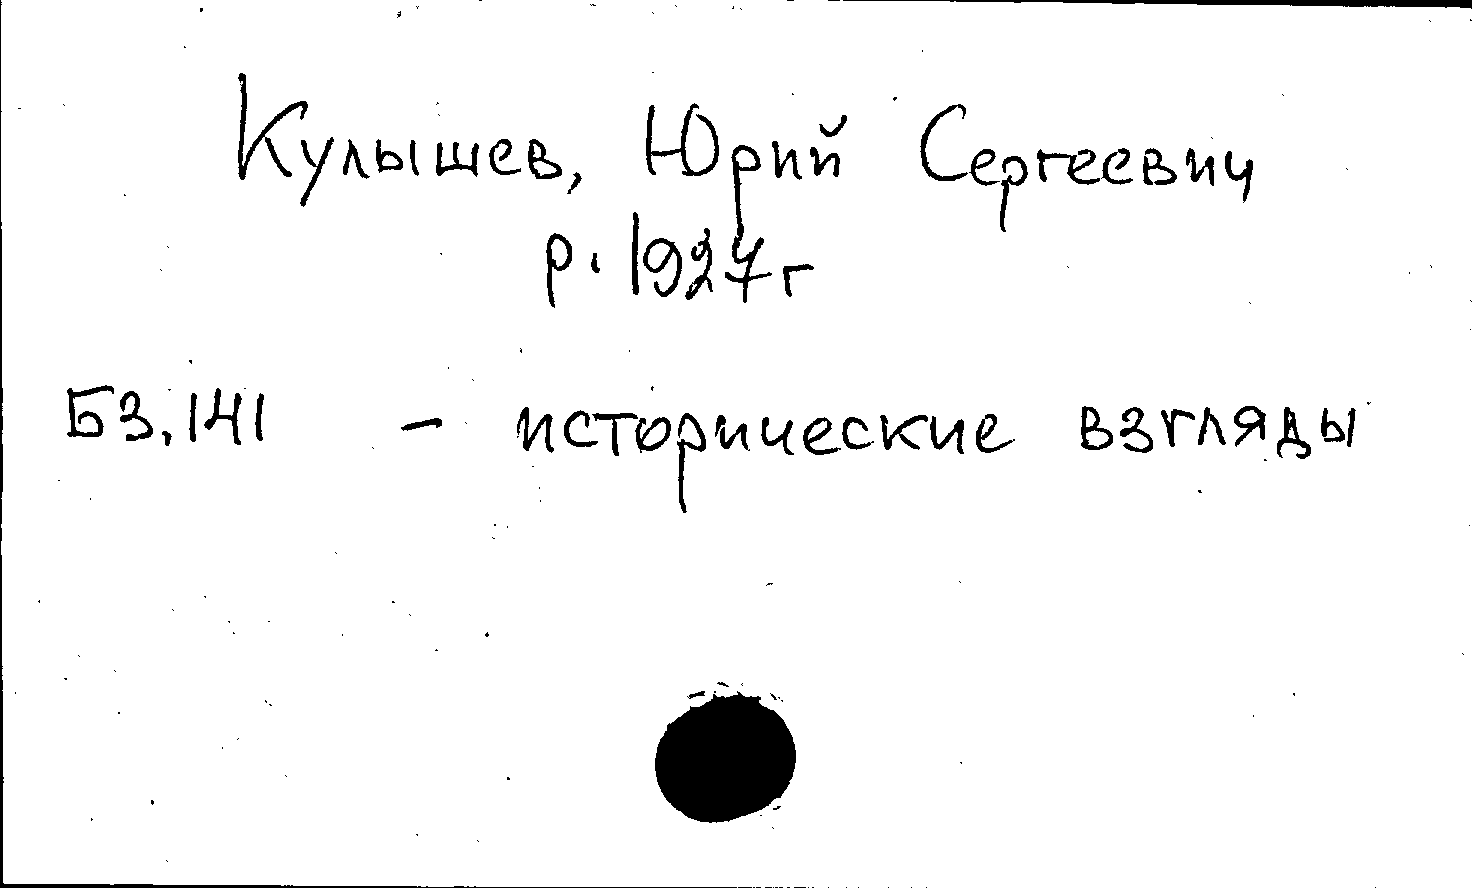 Кулышев, Юрий Сергеевич
р. 1927г
Б3,141 – исторические взгляды